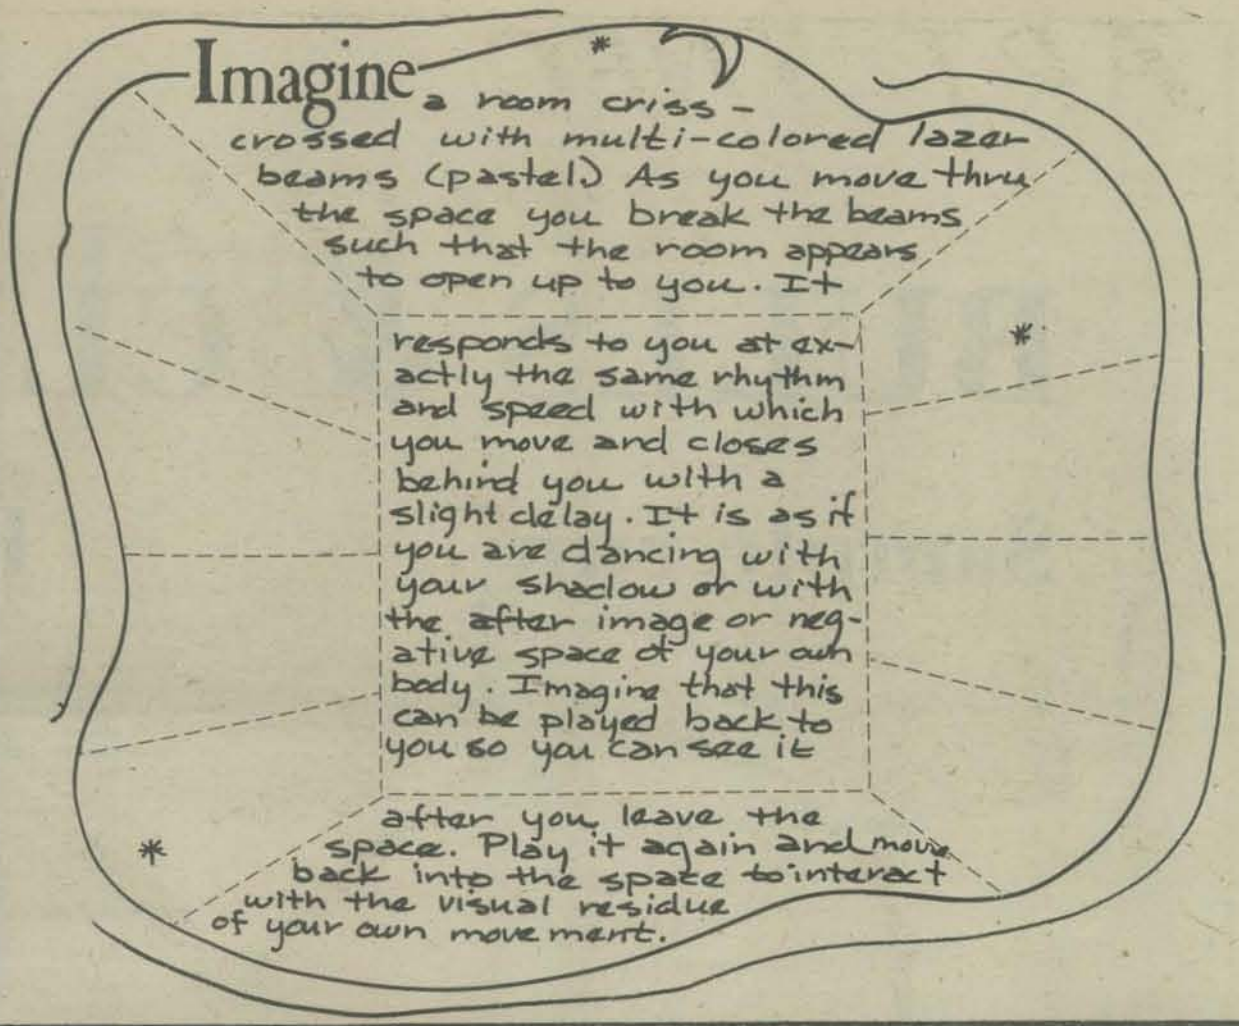 Imagine a room criss-
crossed with multi-colored lazer
beams (pastel.) As you move thru
the space you break the beams
such that the room appears
to open up to you. It
responds to you at ex-
actly the same rhythm
and speed with which
you move and closes
behind you with a
slight delay. It is as if
you are dancing with
your shadow or with
the after image or neg-
ative space of your own
body. Imagine that this
can be played back to
you so you can see it
after you leave the
space. Play it again and move
back into the space to interact
with the visual residue
of your own movement.